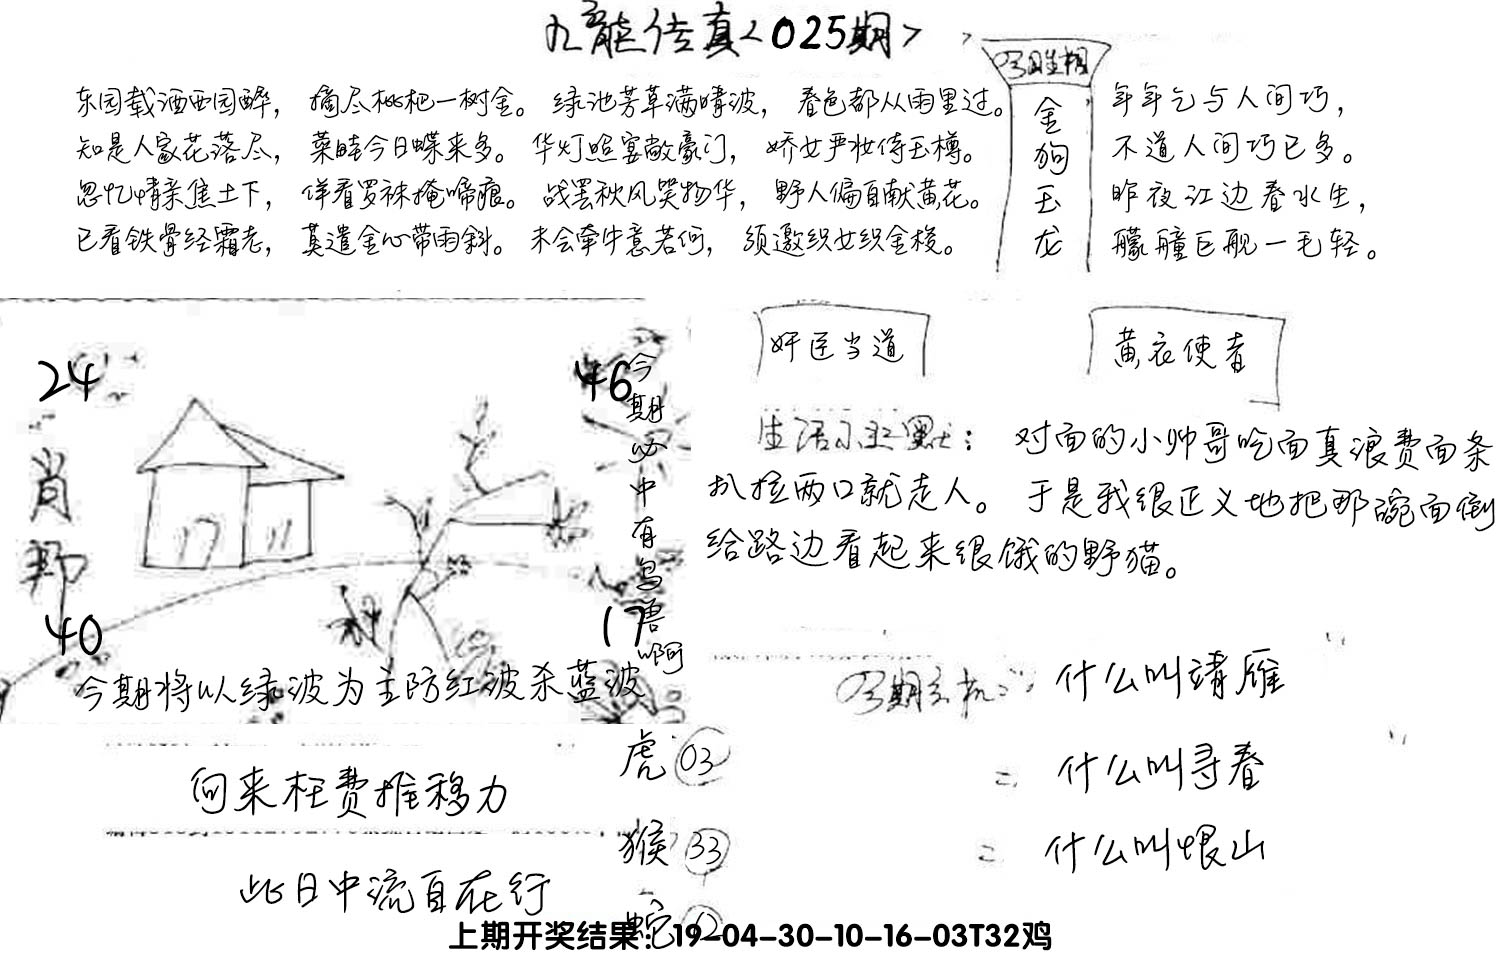 九龍传真<025期>
东园载酒西园醉，摘尽枇杷一树金。绿池芳草满晴波，春色都从雨里过。
知是人家花落尽，菜畦今日蝶来多。华灯照宴敞豪门，娇女严妆侍玉樽。
忽忆情亲焦土下，佯看罗袜掩啼痕。战罢秋风笑物华，野人偏自献黄花。
已看铁骨经霜老，莫遣金心带雨斜。未会牵牛意若何，须邀织女织金梭。
今日生相
金狗玉龙
年年乞与人间巧，
不道人间巧已多。
昨夜江边春水生，
艨艟巨舰一毛轻。
24
46
肖
40
17
今期必中有鸟兽啊
今期将以绿波为主防红波杀蓝波
奸臣当道
黄衣使者
生活小幽默：对面的小帅哥吃面真浪费面条
扒拉两口就走人。于是我很正义地把那碗面倒
给路边看起来很饿的野猫。
向来枉费推移力
此日中流自在行
虎 03
猴 33
蛇 12
今期玄机 什么叫靖雁
二 什么叫寻春
二 什么叫恨山
上期开奖结果：19-04-30-10-16-03T32鸡